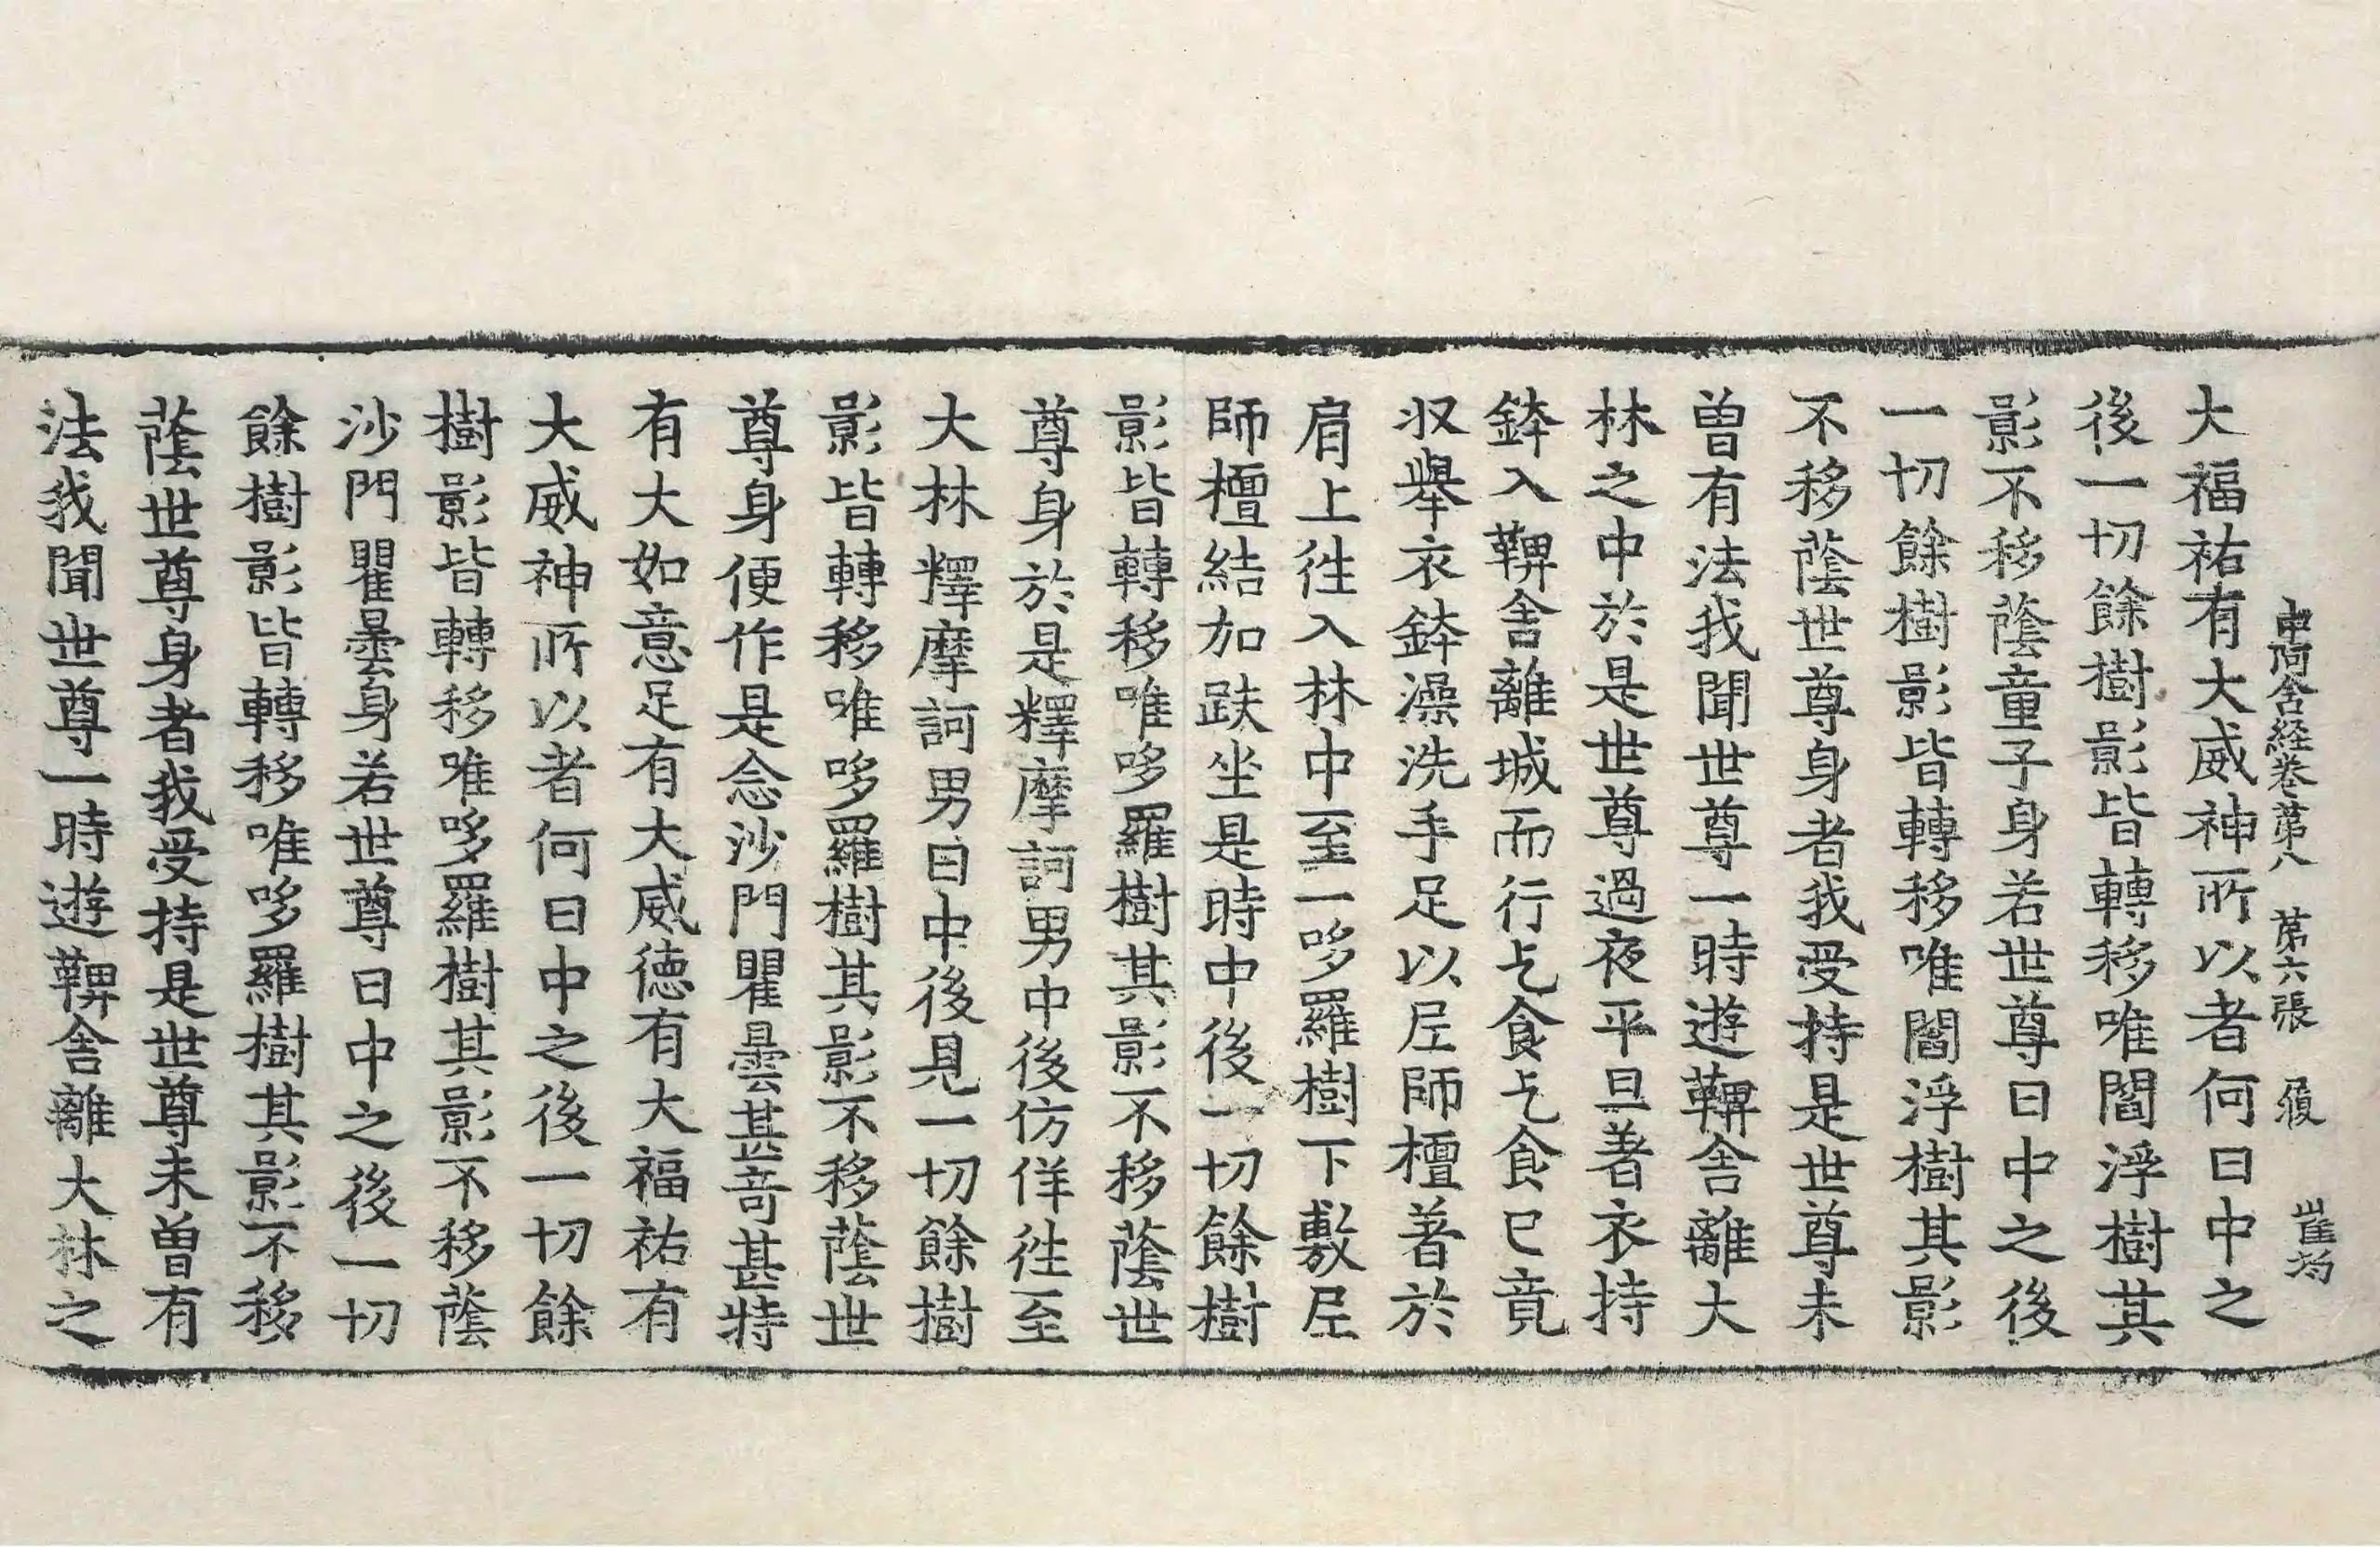 中阿含経卷第八 第六張 履 崔均
大福祐有大威神所以者何日中之
後一切餘樹影皆轉移唯閻浮樹其
影不移蔭童子身若世尊日中之後
一切餘樹影皆轉移唯閻浮樹其影
不移蔭世尊身者我受持是世尊未
曽有法我聞世尊一時遊鞞舍離大
林之中於是世尊過夜平旦著衣持
鉢入鞞舍離城而行乞食乞食已竟
収舉衣鉢澡洗手足以尼師檀著於
肩上徃入林中至一哆羅樹下敷尼
師檀結加趺坐是時中後一切餘樹
影皆轉移唯哆羅樹其影不移蔭世
尊身於是釋摩訶男中後仿佯徃至
大林釋摩訶男日中後見一切餘樹
影皆轉移唯哆羅樹其影不移蔭世
尊身便作是念沙門瞿曇甚竒甚特
有大如意足有大威德有大福祐有
大威神所以者何日中之後一切餘
樹影皆轉移唯哆羅樹其影不移蔭
沙門瞿曇身若世尊日中之後一切
餘樹影皆轉移唯哆羅樹其影不移
蔭世尊身者我受持是世尊未曽有
法我聞世尊一時遊鞞舍離大林之